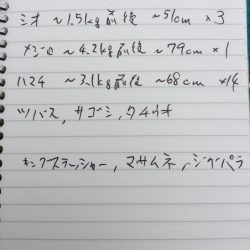 シオ ~1.5kg前後 ~51cm ×3
メジロ ~4.2kg前後 ~79cm ×1
ハマチ ~3.1kg前後 ~68cm ×14
ツバス, サゴシ, タチウオ
キングスラッシャー, マサムネ, ジグパラ